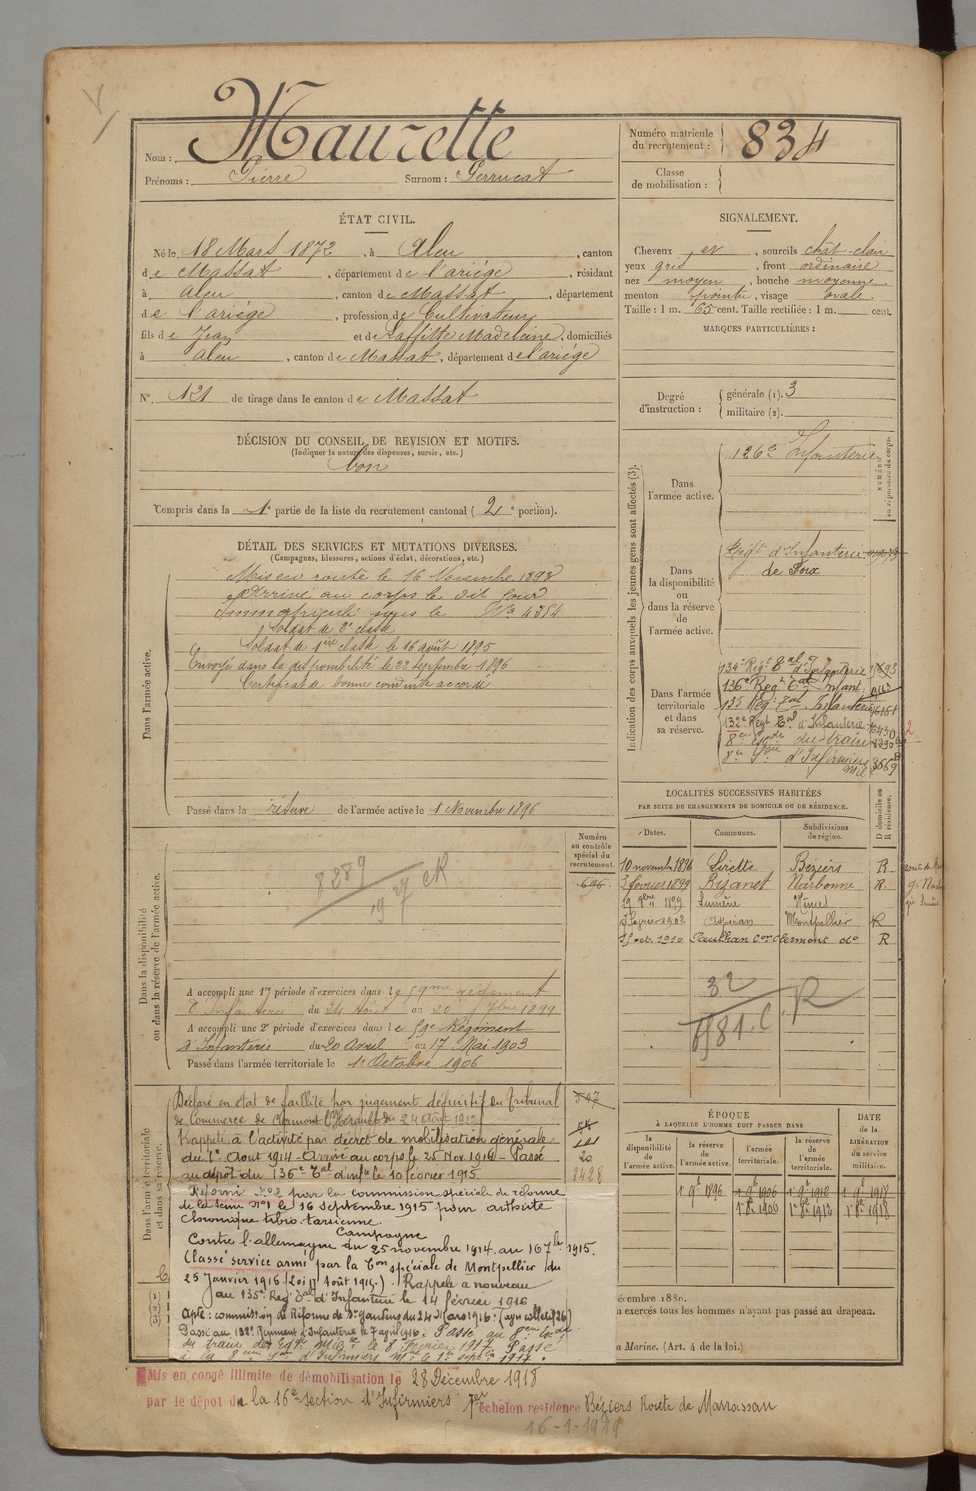 Nom : Maurette
Prénoms : Pierre Surnom : Perrucat
Numéro matricule du recrutement : 834
Classe de mobilisation :
ÉTAT CIVIL.
Né le 18 Mars 1872, à Aleu, canton
de Massat, département de l'ariége, résidant
à Aleu, canton de Massat, département
de l'ariége, profession de Cultivateur
fils de Jean et de Laffitte Madeleine, domiciliés
à Aleu, canton de Massat, département de l'ariége
N° 121 de tirage dans le canton de Massat
SIGNALEMENT.
Cheveux et, sourcils chât-clair
yeux gris, front ordinaire
nez moyen, bouche moyenne
menton pointu, visage ovale
Taille : 1 m. 65 cent. Taille rectifiée : 1 m. cent.
MARQUES PARTICULIÈRES :
Degré d'instruction : générale (1). 3
militaire (2).
DÉCISION DU CONSEIL DE REVISION ET MOTIFS.
(Indiquer la nature des dispenses, sursis, etc.)
bon
Compris dans la 1e partie de la liste du recrutement cantonal (2e portion).
DÉTAIL DES SERVICES ET MUTATIONS DIVERSES.
(Campagnes, blessures, actions d'éclat, décorations, etc.)
Dans l'armée active.
Mis en route le 16 Novembre 1893
Arrivé au corps le dit jour
Immatriculé sous le No 4354
Soldat de 2e classe
Soldat de 1ère classe le 16 août 1895
Envoyé dans la disponibilité le 22 septembre 1896
Certificat de bonne conduite accordé
Passé dans la réserve de l'armée active le 1 Novembre 1896
Indication des corps auxquels les jeunes gens sont affectés (3).
Dans l'armée active.
126e Infanterie
Dans la disponibilité ou dans la réserve de l'armée active.
Régt d'Infanterie
de Foix
Dans l'armée territoriale et dans sa réserve.
134e Regt Tal d'Infanterie
136e Regt Tal Infant.
135 Reg. Tal Infanterie
132e Regt Tal d'Infanterie
8e Escon du train
8e Son d'Infirmiers Mil 3669
LOCALITÉS SUCCESSIVES HABITÉES
PAR SUITE DE CHANGEMENTS DE DOMICILE OU DE RÉSIDENCE.
Dates. Communes. Subdivisions de région. D domicile ou R résidence.
10 novembre 1896 Lirette Béziers R
3 fevrier 1899 Bizanet Narbonne R
29 9bre 1899 Sumène Nîmes
fevrier 1902 Aspiran Montpellier R
15 oct. 1910 Paulhan Con Clermont do R
32
R
Numéro au contrôle spécial du recrutement.
696
8289
Dans la disponibilité ou dans la réserve de l'armée active.
A accompli une 1re période d'exercices dans le 59me régiment
d'Infanterie du 24 Août au 20 7bre 1899
A accompli une 2e période d'exercices dans le 59e Régiment
d'Infanterie du 20 Avril au 17 Mai 1903
Passé dans l'armée territoriale le 1er Octobre 1906
Dans l'armée territoriale et dans sa réserve.
Déclaré en état de faillite par jugement définitif du Tribunal
de Commerce de Clermont l'Hérault du 24 Août 1912
Rappelé à l'activité par décret de mobilisation générale
du 1er Août 1914 - Arrivé au corps le 25 Nov. 1914 - Passé
au dépôt du 136e Tal d'Infie le 10 février 1915.
Réformé No 2 par la commission spéciale de réforme
de la Seine No 1 le 16 septembre 1915 pour arthrite
chronique tibio-tarsienne.
Campagne
Contre l'allemagne du 25 novembre 1914 au 16 7bre 1915.
Classé service armé par la Con spéciale de Montpellier du
25 Janvier 1916 (Loi 17 Août 1915). Rappelé à nouveau
au 135e Reg. Tal d'Infanterie le 14 février 1916
Apte : commission de Réforme de St Gaudens du 24 Mars 1916.
Passé au 132e Régiment d'Infanterie le 7 avril 1916. Passé au 8eme Escon
du train des Eqes Mires le 8 Février 1917. Passé
à la 8eme Son d'Infirmiers Mre le 1er septbre 1917.
547
20
2428
ÉPOQUE
À LAQUELLE L'HOMME DOIT PASSER DANS
la disponibilité de l'armée active. la réserve de l'armée active. l'armée territoriale. la réserve de l'armée territoriale.
DATE de la LIBÉRATION du service militaire.
1 9bre 1896 1 9bre 1906 1 9bre 1912 1 9bre 1918
1 8bre 1906 1 8bre 1912 1 8bre 1918
écembre 1880.
a exercés tous les hommes n'ayant pas passé au drapeau.
a Marine. (Art. 4 de la loi.)
Mis en congé illimité de démobilisation le 28 Décembre 1918
par le dépôt de la 16e section d'Infirmiers 7em échelon résidence Béziers Route de Maraussan
16-1-1919